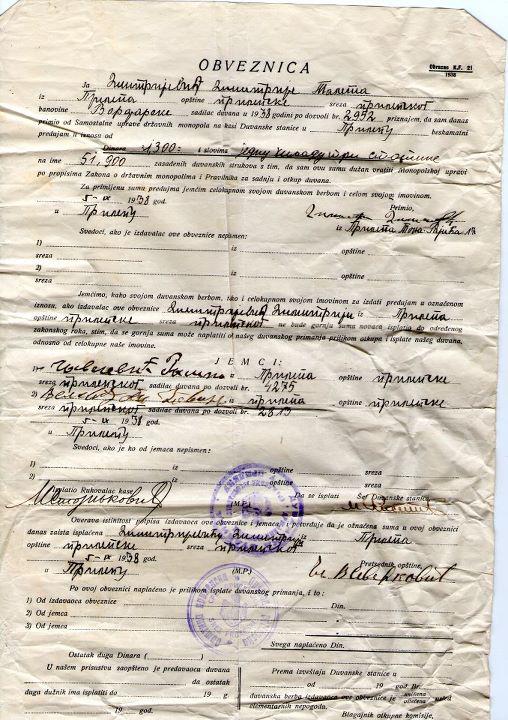 Obrazac K.F. 21
1938
OBVEZNICA
Za Димитријевић Димитрије
iz Прилепа opštine прилепске sreza прилепског
banovine Вардарске sadilac duvana u 1938 godini po dozvoli br. 2992 priznajem, da sam danas
primio od Samostalne uprave državnih monopola na kasi Duvanske stanice u Прилепу beskamatni
predujam u iznosu od
Dinara =1300= i slovima једну хиљаду три стотине
na ime 51,900 zasađenih duvanskih strukova s tim, da sam ovu sumu dužan vratiti Monopolskoj upravi
po propisima Zakona o državnim monopolima i Pravilnika za sadnju i otkup duvana.
Za primljenu sumu predujma jemčim celokupnom svojom duvanskom berbom i celom svojom imovinom.
5-IX 1938 god. Primio,
u Прилепу
iz Прилепа
Svedoci, ako je izdavalac ove obveznice nepismen:
1) iz opštine
sreza 2) iz opštine
sreza
Jemčimo, kako svojom duvanskom berbom, tako i celokupnom svojom imovinom za izdati predujam u označenom
iznosu, ako izdavalac ove obveznice Димитријевић Димитрије iz Прилепа
opštine прилепске sreza прилепског ne bude gornju sumu novaca isplatio do određenog
zakonskog roka, stim, da se gornja suma može naplatiti i našeg duvanskog primanja prilikom otkupa i isplate našeg duvana,
odnosno od celokupne naše imovine.
JEMCI:
iz Прилепа opštine прилепске
sreza прилепског sadilac duvana po dozvoli br. 4275
2) iz Прилепа opštine прилепске
sreza прилепског sadilac duvana po dozvoli br. 2813
5-IX 1938 god.
u Прилепу
Svedoci, ako je ko od jemaca nepismen:
1) iz opštine sreza
2) iz opštine sreza
Isplatio Rukovalac kase (M.P.) Da se isplati Šef Duvanske stanice,
Overava istinitost potpisa izdavaoca ove obveznice i jemaca i potvrđuje da je označena suma u ovoj obveznici
danas zaista isplaćena Димитријевићу Димитрију iz Прилепа
opštine прилепске sreza прилепског
5-IX 1938 god. Pretsednik opštine,
u Прилепу (M.P.)
Po ovoj obveznici naplaćeno je prilikom isplate duvanskog primanja, i to:
1) Od izdavaoca obveznice Din.
2) Od jemca „
3) Od jemca „
Svega naplaćeno Din.
Ostatak duga Dinara ( )
U našem prisustvu saopšteno je predavaocu duvana
da ostatak
duga dužnik ima isplatiti do 19 g.
19 god.
Prema izveštaju Duvanske stanice u
od 19 god. br.
duvanska berba izdavaoca ove obveznice je uništena
oštećena usled
elementarnih nepogoda.
Blagajnik otkupne komisije,